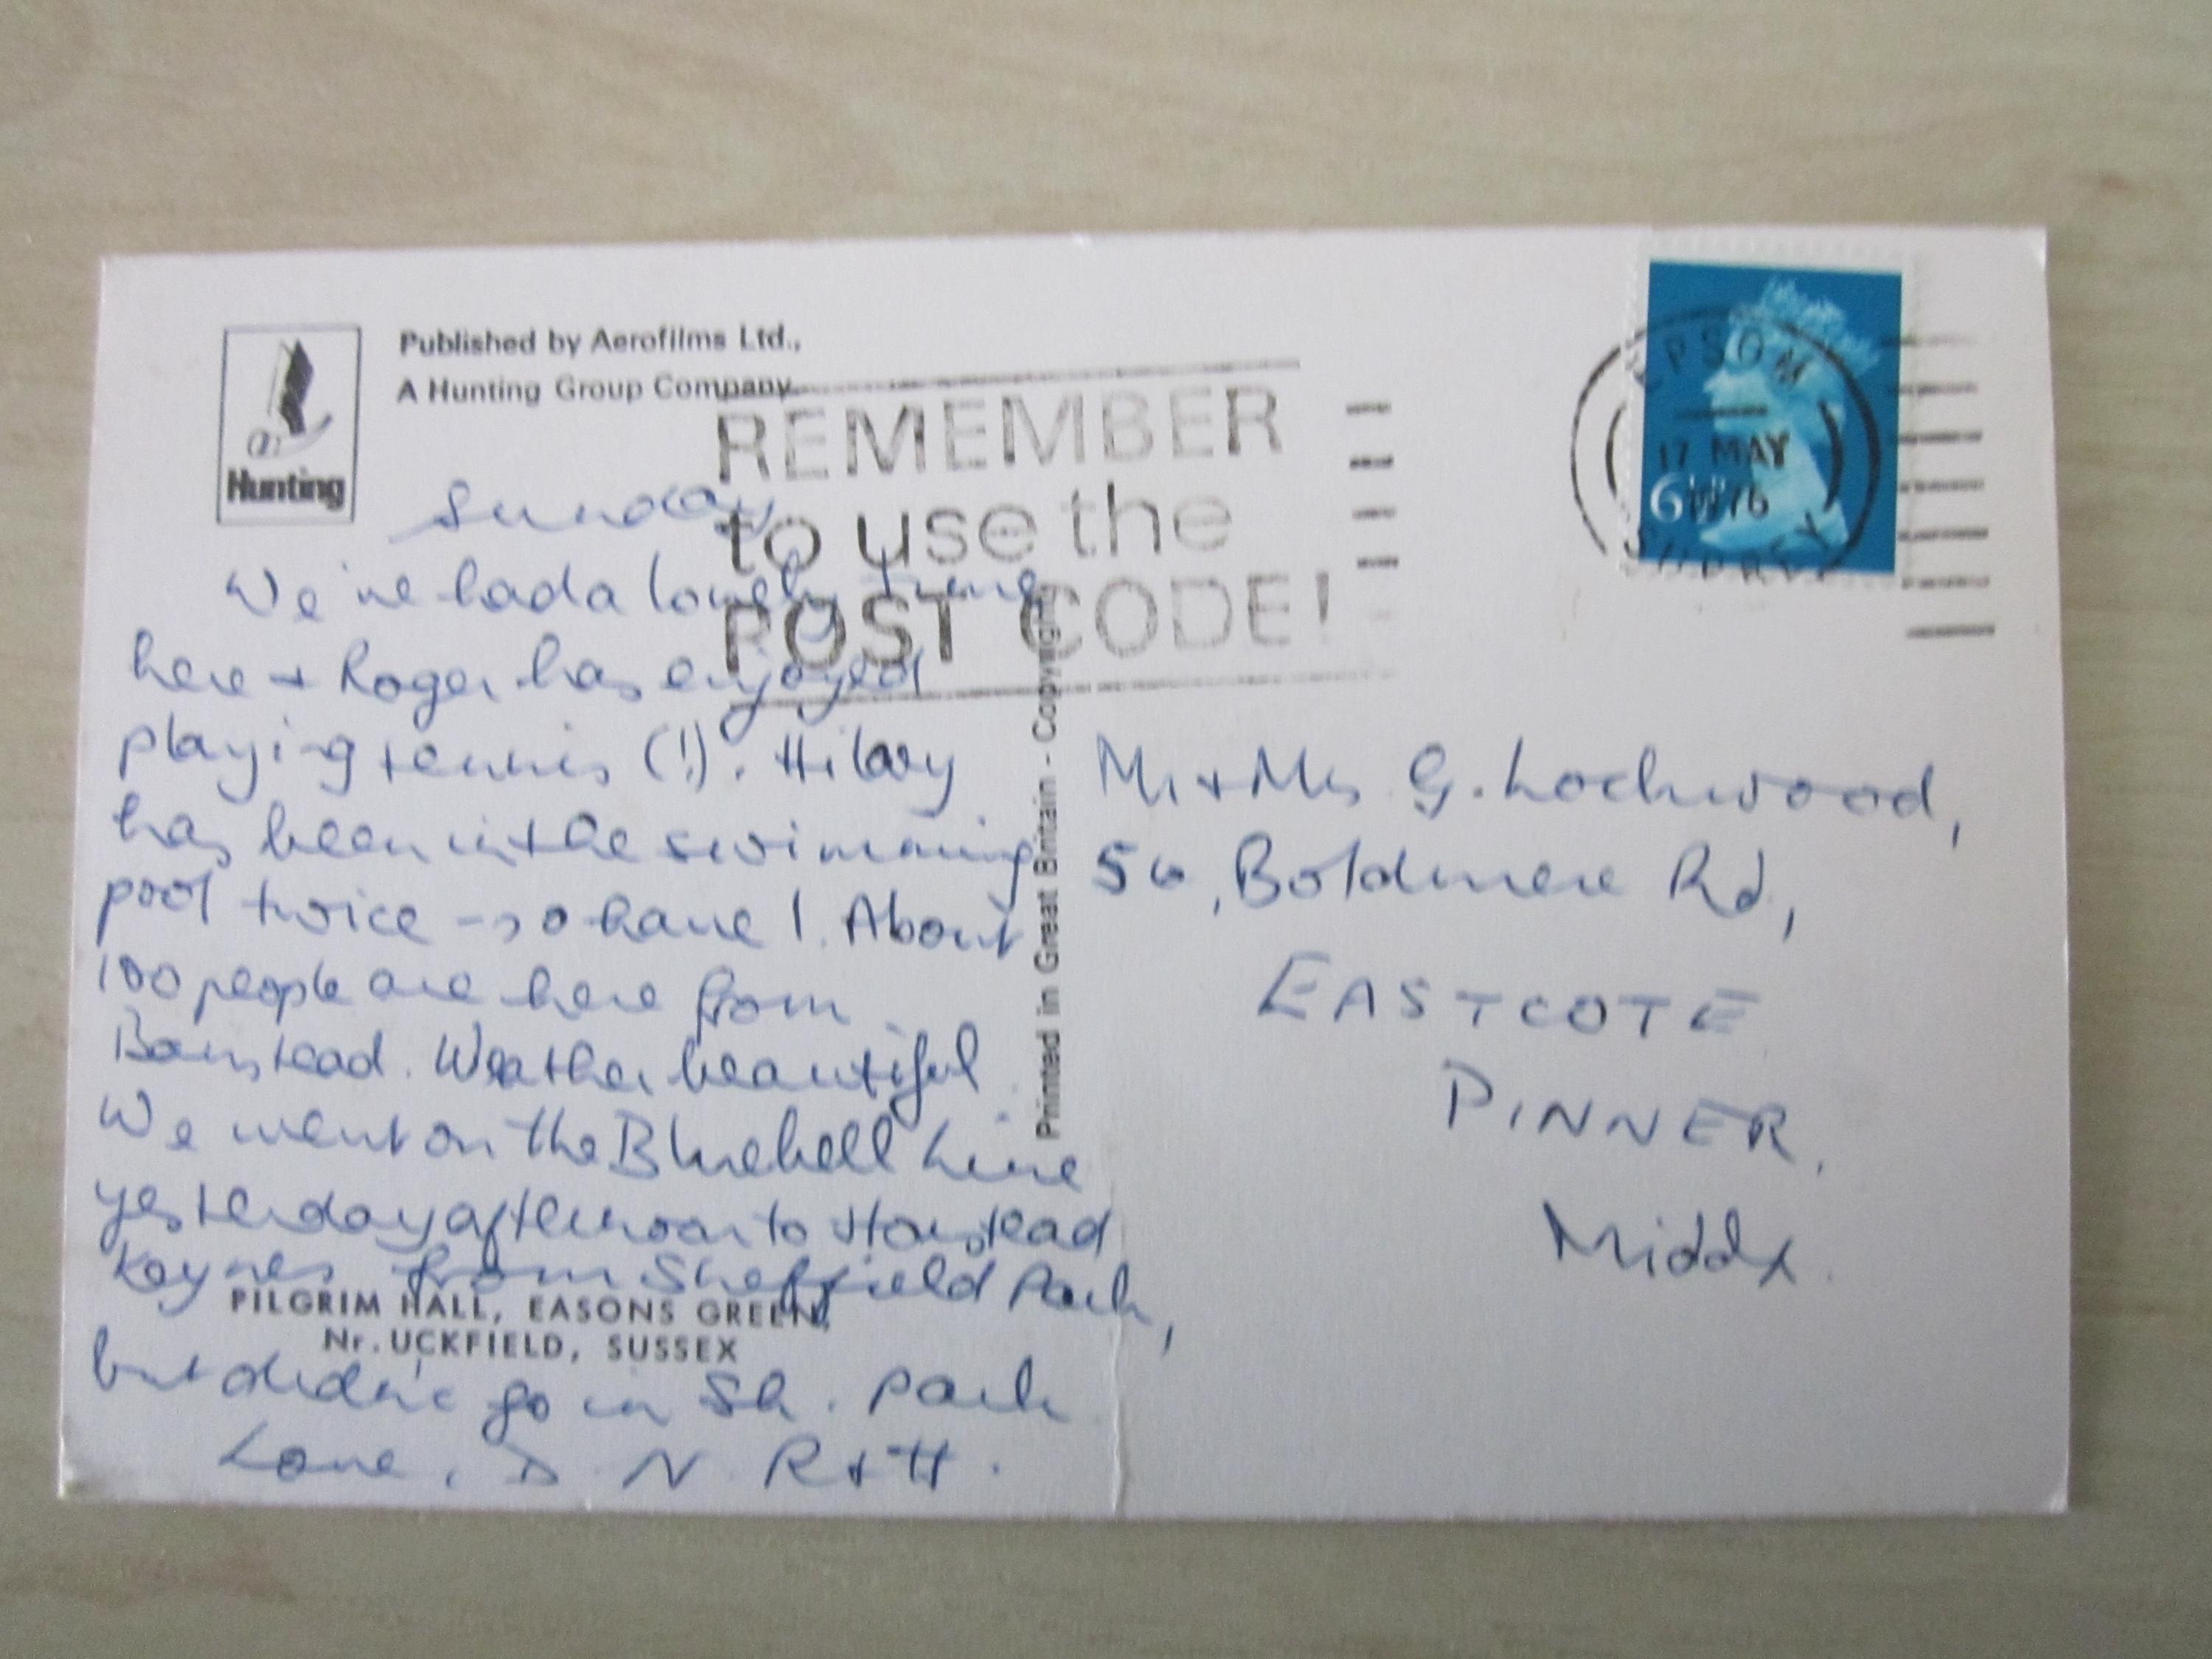 Published by Aerofilms Ltd.,
A Hunting Group Company.
Hunting
REMEMBER
to use the
POST CODE!
EPSOM
17 MAY
1976
SURREY
6½P
Sunday
We've had a lovely time
here + Roger has enjoyed
playing tennis (!). Hilary
has been in the swimming
pool twice - so have I. About
100 people are here from
Banstead. Weather beautiful.
We went on the Bluebell Line
yesterday afternoon to Horstead
Keynes from Sheffield Park,
but didn't go in Sh. Park.
Love, D N R + H.
PILGRIM HALL, EASONS GREEN,
Nr. UCKFIELD, SUSSEX
Printed in Great Britain - Copyright
Mr + Mrs G. Lockwood,
Boldmere Rd,
EASTCOTE
PINNER,
Middx.